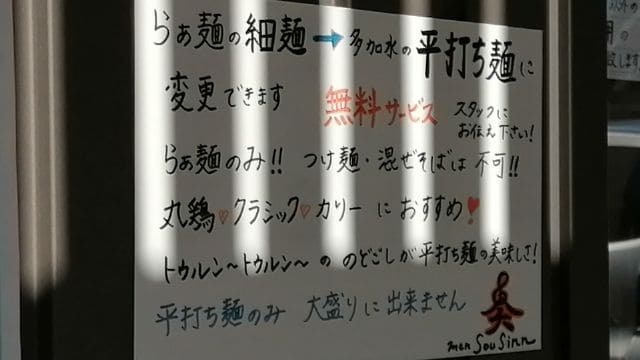 らぁ麺の細麺→多加水の平打ち麺に
変更できます 無料サービス スタッフにお伝え下さい!
らぁ麺のみ!! つけ麺・混ぜそばは 不可!!
丸鶏♡クラシック♡カリー におすすめ❣
トゥルン〜トゥルン〜の のどごしが平打ち麺の美味しさ!
平打ち麺のみ 大盛りに出来ません
men Sou Sinn